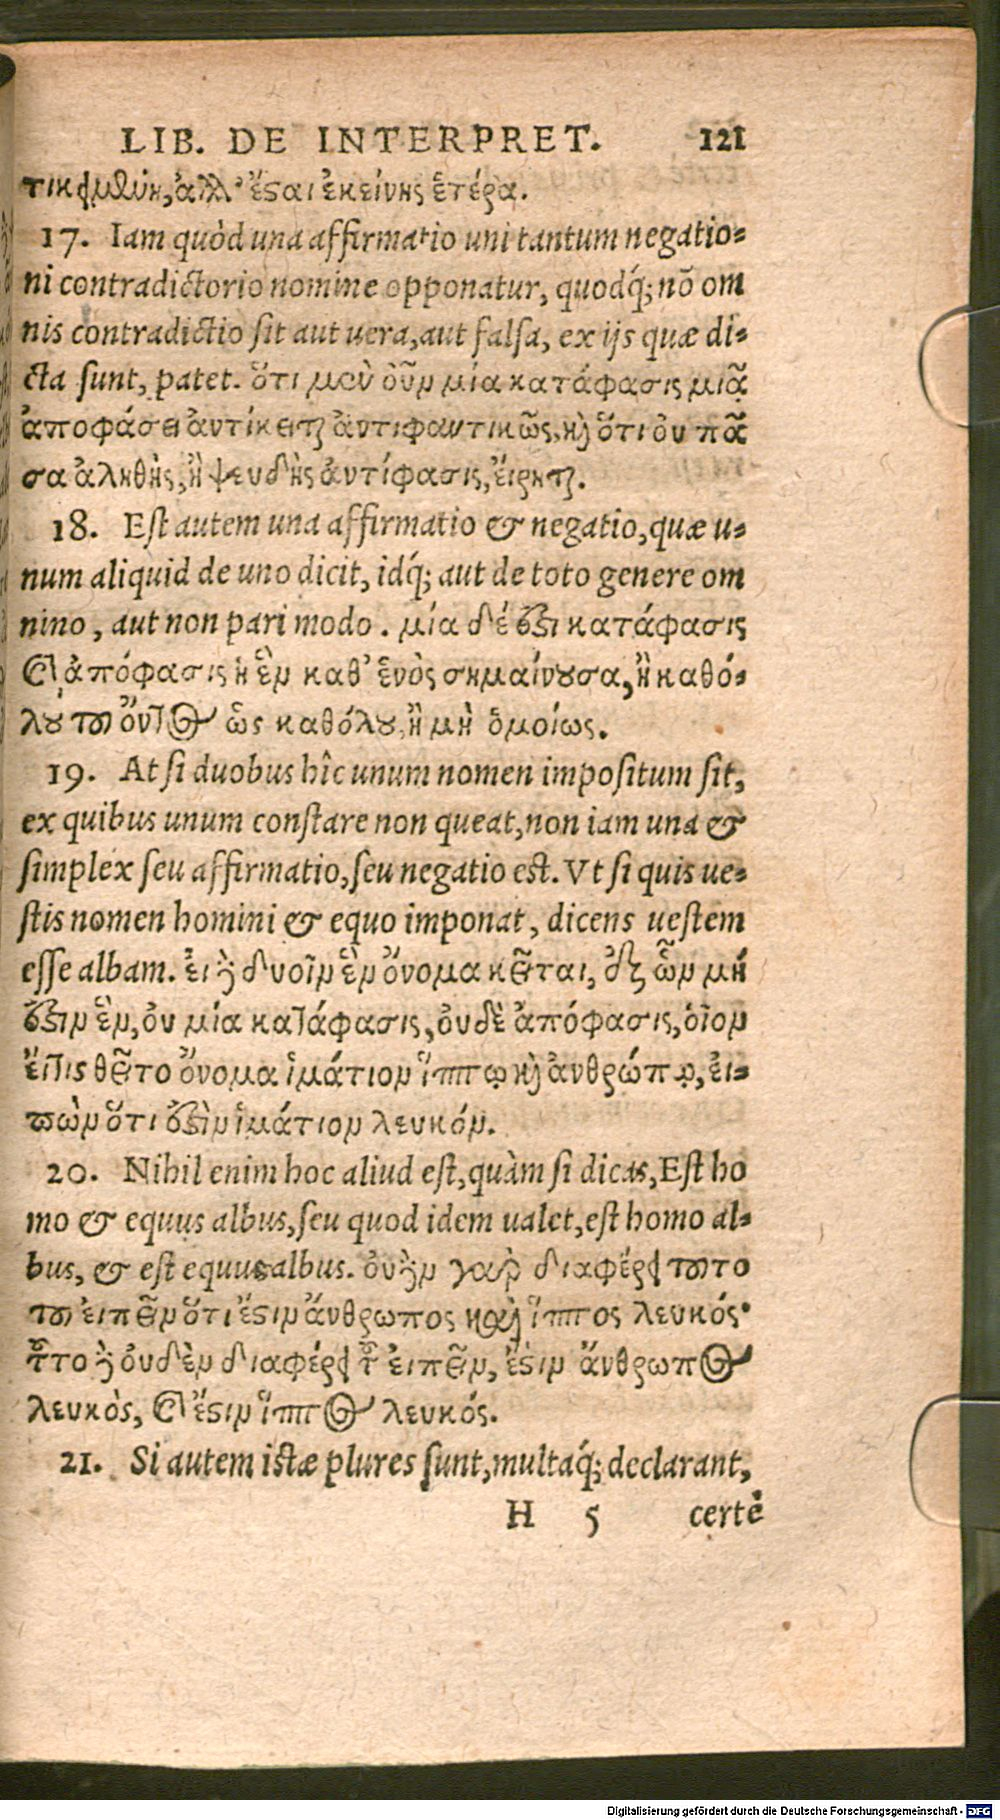 LIB. DE INTERPRET. 121
τικειμένη, ἀλλ᾽ ἔϛαι ἐκείνης ἑτέρα.
17. Iam quòd una affirmatio uni tantum negatio-
ni contradictorio nomine opponatur, quodq́; nõ om
nis contradictio sit aut uera, aut falsa, ex ijs quæ di-
cta sunt, patet. ὅτι μὲν οὖν μία κατάφασις μιᾷ
ἀποφάσει ἀντίκειται ἀντιφατικῶς, καὶ ὅτι οὐ πᾶ
σα ἀληθὴς, ἢ ψευδὴς ἀντίφασις, εἴρηται.
18. Est autem una affirmatio & negatio, quæ u-
num aliquid de uno dicit, idq́; aut de toto genere om
nino, aut non pari modo. μία δέ ἐϛι κατάφασις
καὶ ἀπόφασις ἡ ἓν καθ᾽ ἑνὸς σημαίνουσα, ἢ καθό-
λου τοῦ ὄντος ὡς καθόλου, ἢ μὴ ὁμοίως.
19. At si duobus hîc unum nomen impositum sit,
ex quibus unum constare non queat, non iam una &
simplex seu affirmatio, seu negatio est. Vt si quis ue-
stis nomen homini & equo imponat, dicens uestem
esse albam. εἰ δὲ δυοῖν ἓν ὄνομα κεῖται, ἐξ ὧν μή
ἐϛιν ἓν, οὐ μία κατάφασις, οὐδὲ ἀπόφασις, οἷον
εἴ τις θεῖτο ὄνομα ἱμάτιον ἵππῳ καὶ ἀνθρώπῳ, εἰ-
πὼν ὅτι ἐϛὶν ἱμάτιον λευκόν.
20. Nihil enim hoc aliud est, quàm si dicas, Est ho
mo & equus albus, seu quod idem ualet, est homo al-
bus, & est equus albus. οὐδὲν γὰρ διαφέρει τοῦτο
τοῦ εἰπεῖν ὅτι ἔϛιν ἄνθρωπος καὶ ἵππος λευκός·
τοῦτο δὲ οὐδὲν διαφέρει τοῦ εἰπεῖν, ἔϛιν ἄνθρωπος
λευκὸς, καὶ ἔϛιν ἵππος λευκός.
21. Si autem istæ plures sunt, multaq́; declarant,
H 5 certè
Digitalisierung gefördert durch die Deutsche Forschungsgemeinschaft - DFG